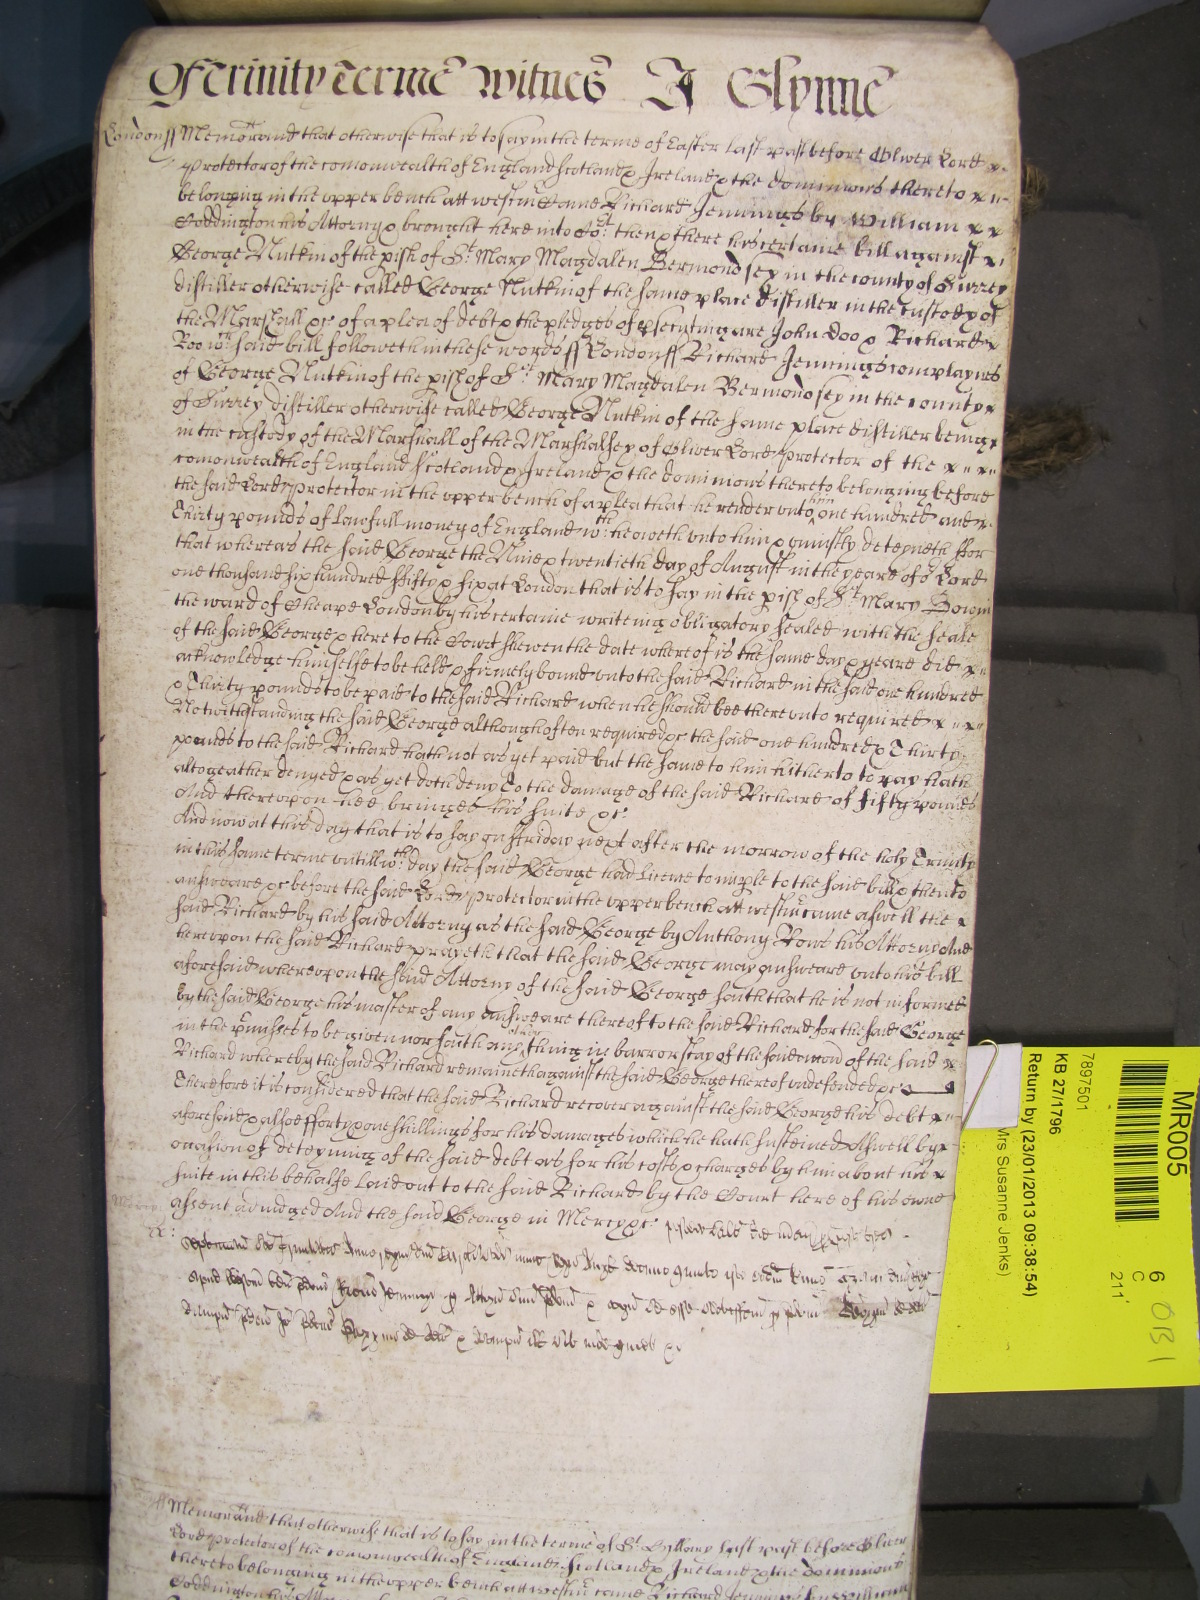 Of Trinity Terme Witnes J Glynne
London ss Memorand that otherwise that is to say in the terme of Easter last past before Oliver Lord
Protector of the comonwealth of England Scotland & Ireland & the dominions thereto
belonging in the upper bench att Westm Came Richard Jennings by William
Coddington his Attorny & brought here into Cort then & there his certaine bill against
George Nutkin of the pish of St Mary Magdalen Bermondsey in the county of Surrey
distiller otherwise called George Nutkin of the same place distiller in the custody of
the Marshall &c of a plea of debt & the pledges of psecuting are John Doo & Richard
Roo wch said bill followeth in these words ss London ss Richard Jennings complaynes
of George Nutkin of the pish of St Mary Magdalen Bermondsey in the county
of Surrey distiller otherwise called George Nutkin of the same place distiller being
in the custody of the Marshall of the Marshalsey of Oliver Lord Protector of the
comonwealth of England Scotland & Ireland & the dominions thereto belonging before
the said Lord Protector in the upper bench of a plea that he render unto him one hundred and
Thirty pounds of lawfull money of England wch he oweth unto him & uniustly deteyneth ffor
that whereas the said George the Nine & twentieth day of August in the yeare of or Lord
one thousand six hundred ffifty & six at London that is to say in the pish of St Mary Bow in
the ward of Cheape London by his certaine writeing obligatory sealed with the seale
of the said George & here to the Cowrt shewen the date whereof is the same day & yeare did
acknowledge himselfe to be held & firmely bound unto the said Richard in the said one hundred
& Thirty pounds to be paid to the said Richard when he should bee thereunto required
Notwithstanding the said George although often required &c the said one hundred & Thirty
pounds to the said Richard hath not as yet paid but the same to him hitherto to pay hath
altogeather denyed & as yet doth deny To the damage of the said Richard of fifty pounds
And thereupon hee bringes his suite &c
And now at this day that is to say on ffriday next after the morrow of the holy Trinity
in this same terme untill wch day the said George had licence to imple to the said bill & then to
answeare &c before the said Lord Protector in the upper bench att Westm came aswell the
said Richard by his said Attorny as the said George by Anthony Rous his Attorny And
hereupon the said Richard prayeth that the said George may answeare unto his bill
aforesaid whereupon the said Attorny of the said George saith that he is not informed
by the said George his master of any answeare thereof to the said Richard for the said George
in the pmisses to be given nor saith any other thing in barr or stay of the said accion of the said
Richard whereby the said Richard remaineth against the said George thereof undefended &c
Therefore it is considered that the said Richard recover against the said George his debt
aforesaid & alsoe fforty one shillings for his damages which he hath susteined aswell by
occasion of deteyning of the said debt as for his costs & charges by him about his
suite in this behalfe laid out to the said Richard by the Court here of his owne
assent adiudged And the said George in Mercy &c
Memorand that otherwise that is to say in the terme of St Hyllary last past before Oliver
Lord Protector of the comonwealth of England Scotland & Ireland & the dominions
thereto belonging in the upper bench att Westm came Richard Jennings by William
Coddington his
MR005
6
C
211
OB1
7897501
KB 27/1796
Return by (23/01/2013 09:38:54)
Mrs Susanne Jenks)